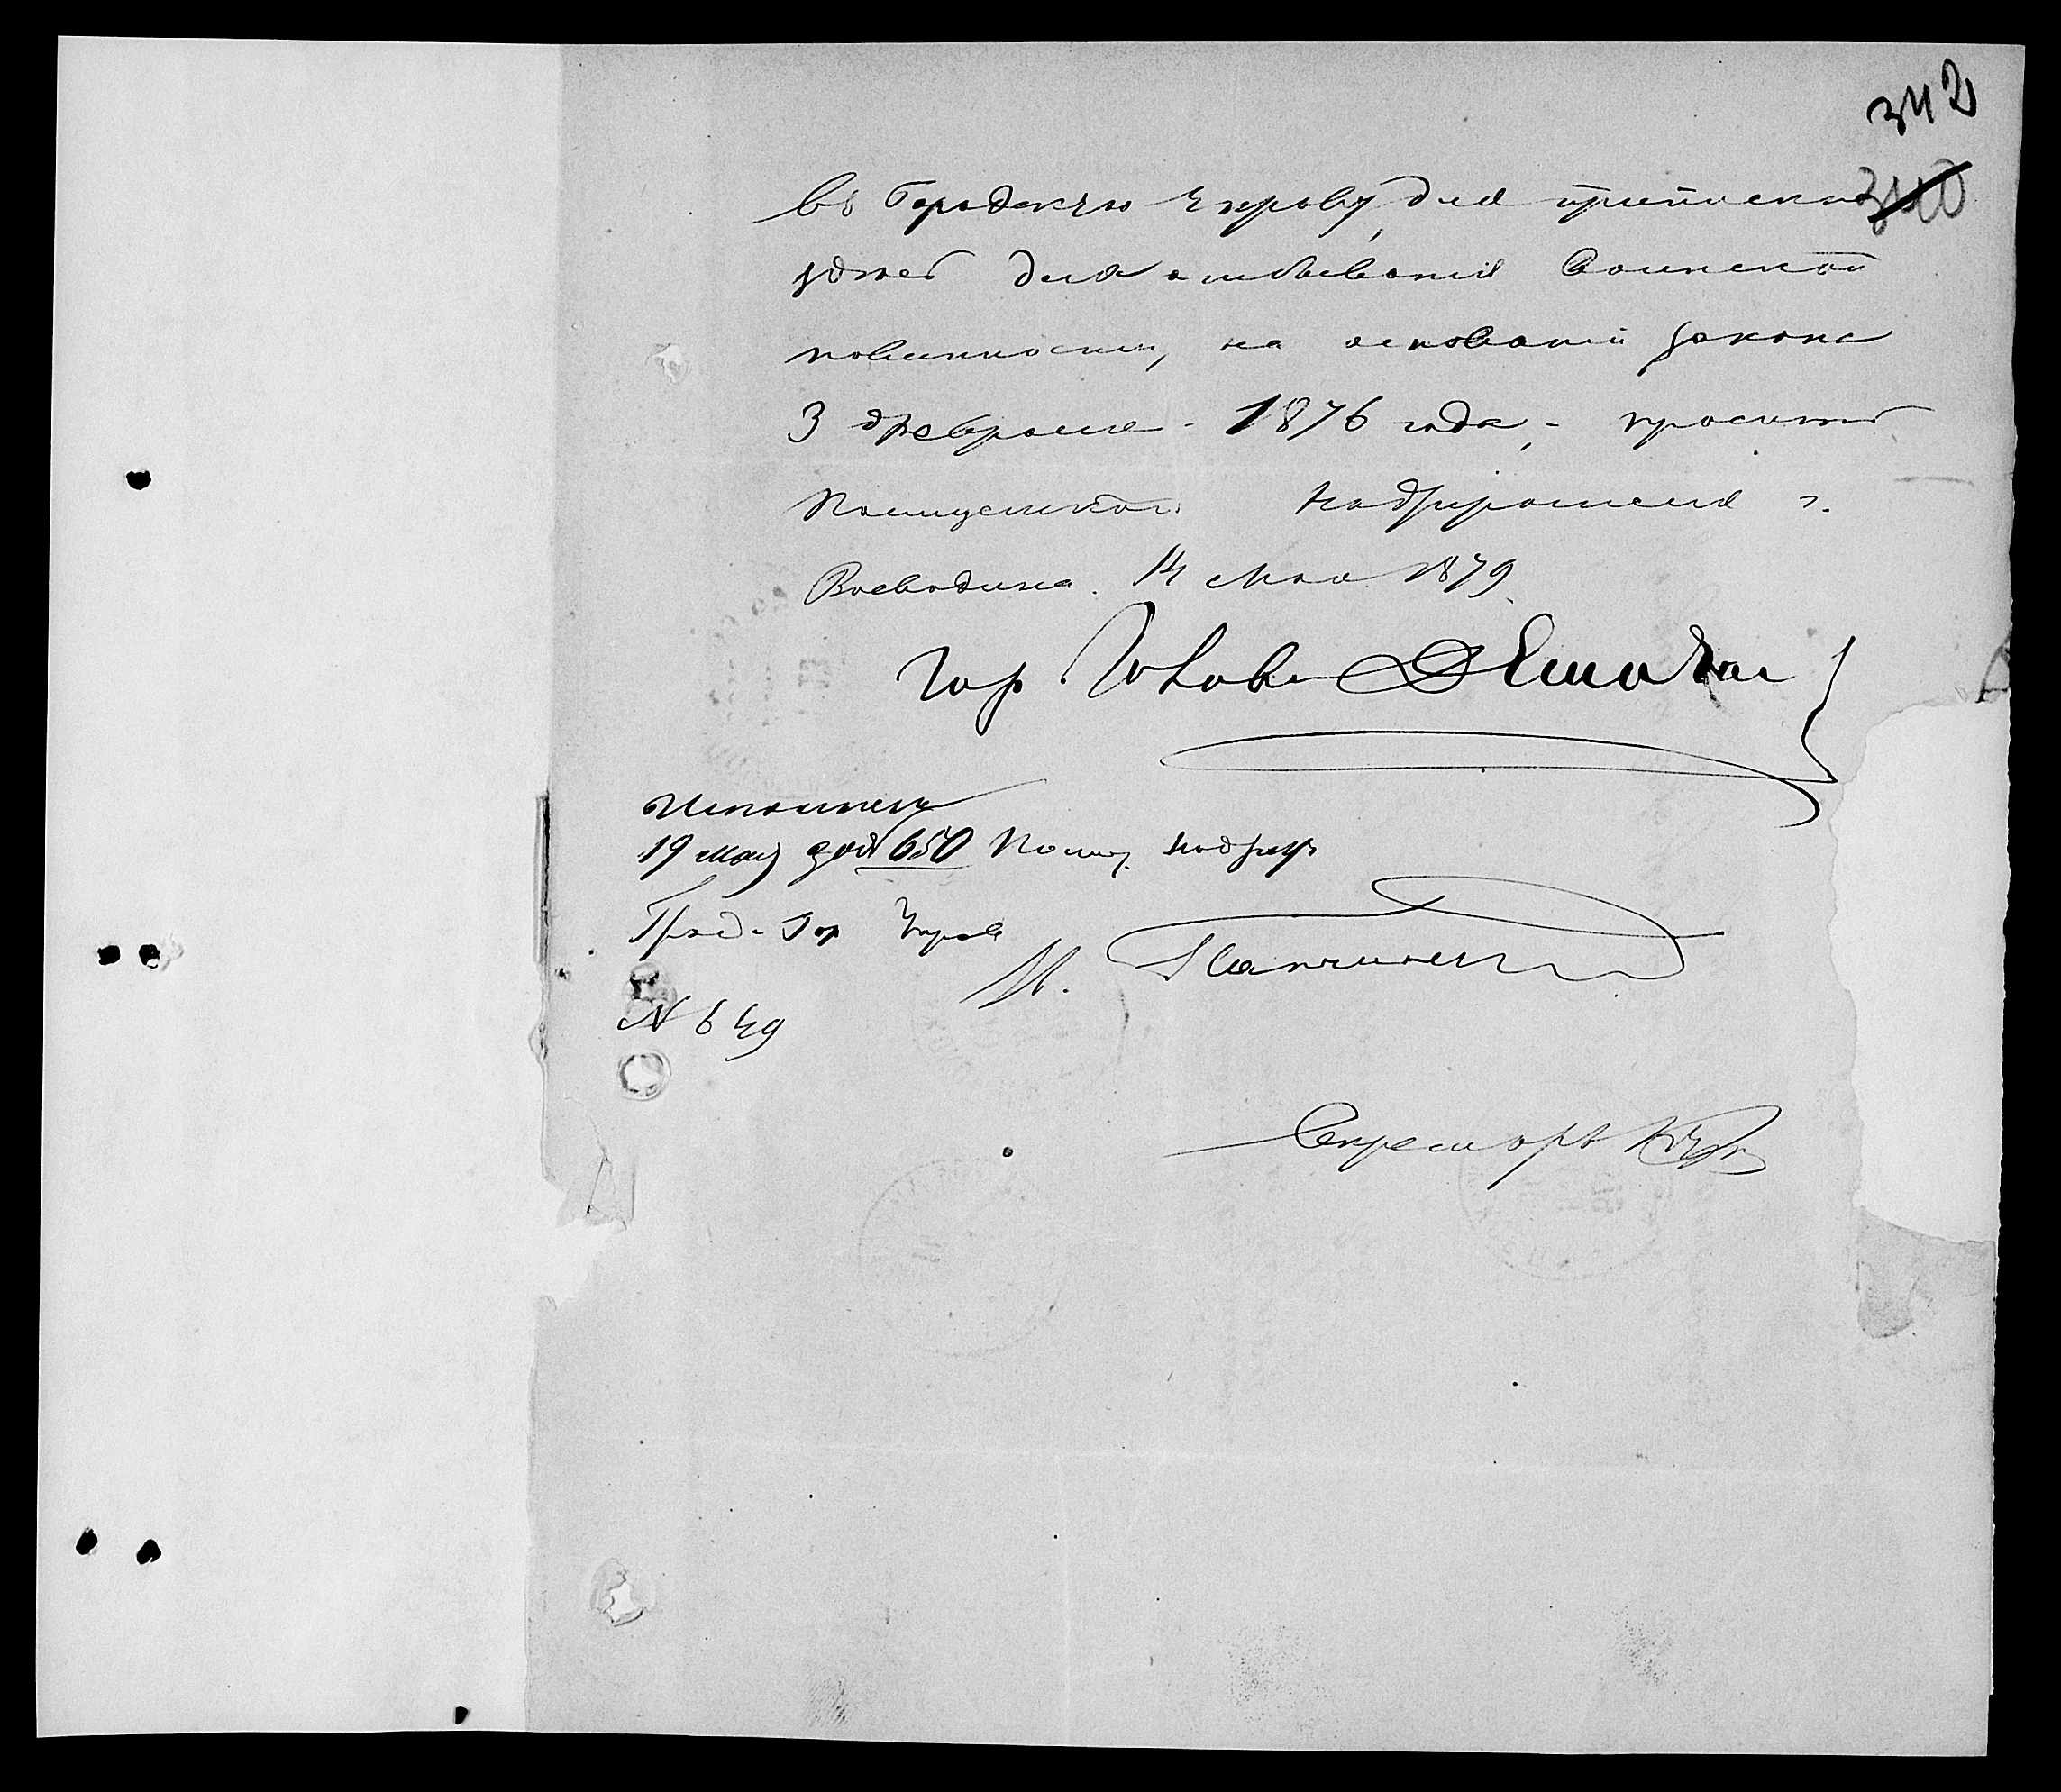 342
340
въ Городскую Управу, для приписки
здѣсь для отбыванія воинской
повинности, на основаніи закона
3 февраля 1876 года, - просить
Полицейскаго Надзирателя г.
Воеводина. 14 Мая 1879
Гор Голова
Исполнено
19 Мая за № 650 Полиц. Надзир
Град. Гор Управ
№ 649
Секретарь